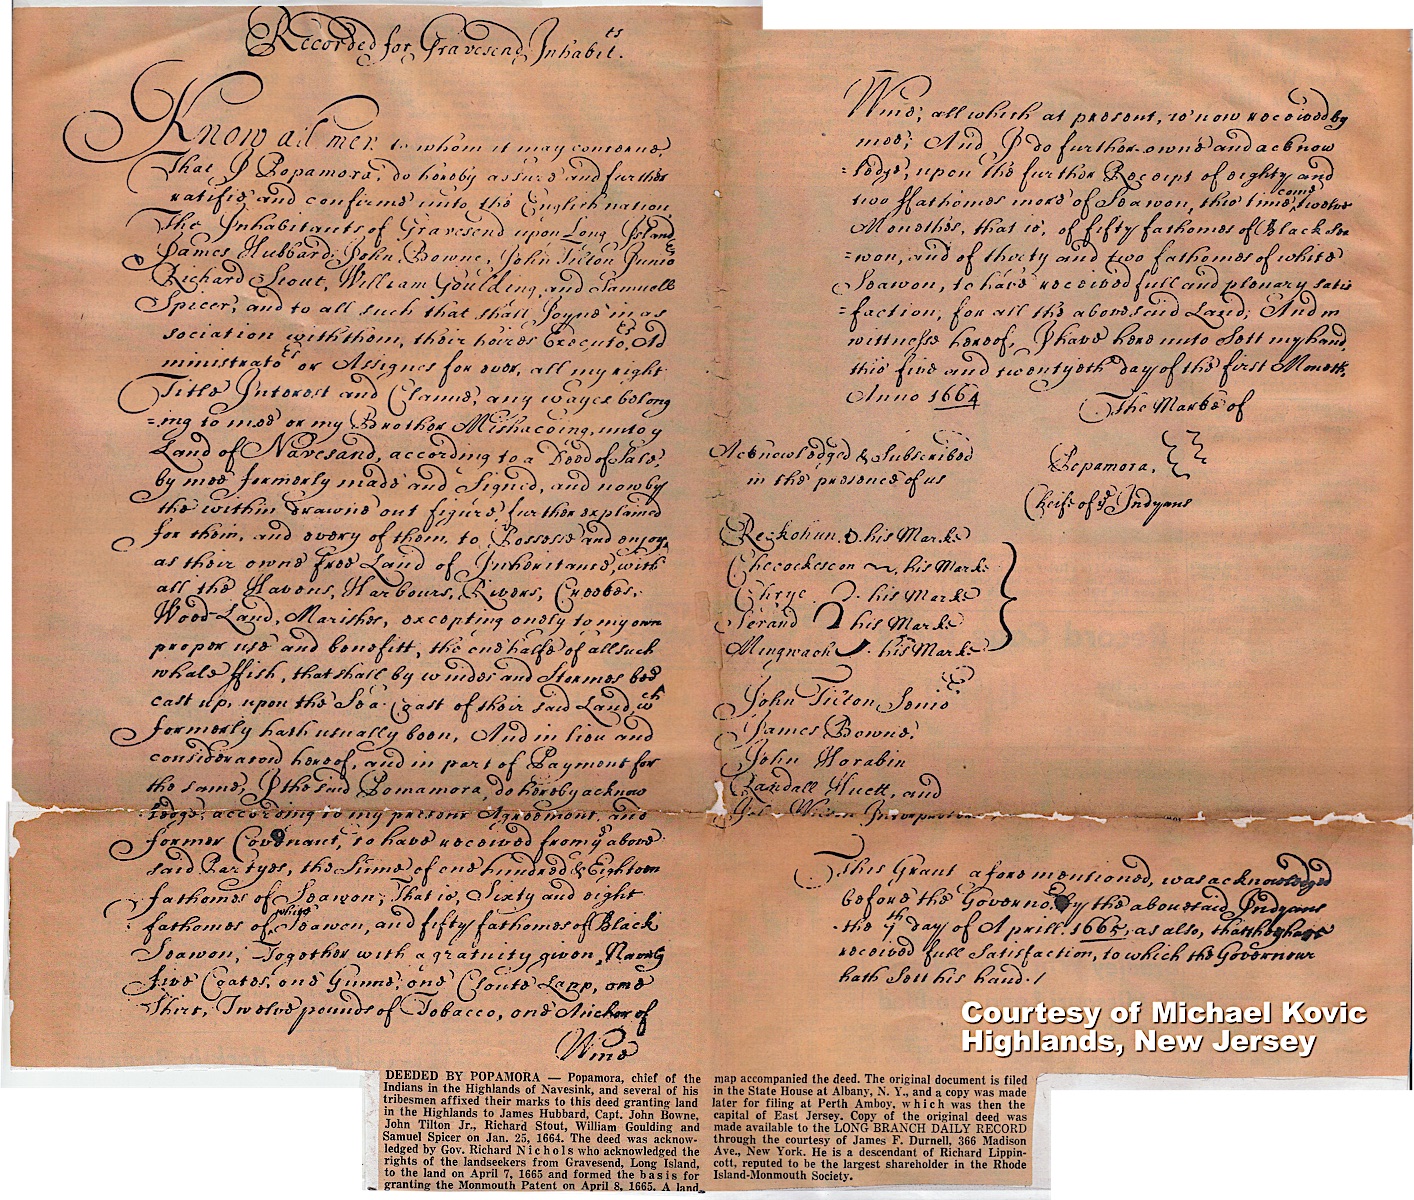 Recorded for Gravesend Inhabit.ts
Know all men to whom it may concerne
That I Popamora, do hereby assure and further
ratifie, and confirme unto the English nation
The Inhabitants of Gravesend upon Long Island
James Hubbard, John Bowne, John Tilton Junio
Richard Stout, William Goulding, and Samuell
Spicer, and to all such that shall Joyne in as
sociation with them, their heires Executo.rs Ad
ministrato.rs or Assignes for ever, all my right
Title Interest and Claime, any wayes belong
=ing to mee or my Brother Mishacoing, unto y
Land of Navesand, according to a Deed of Sale,
by mee formerly made and Signed, and now by
the within drawne out figure, further explained
for them, and every of them, to Possesse and enjoy,
as their owne free Land of Inheritance, with
all the Havens, Harbours, Rivers, Creekes,
Wood-Land, Marishes, excepting onely to my own
proper use and benefitt, the one halfe of all such
whale ffish, that shall by windes and Stormes bee
cast up, upon the Sea Coast of their said Land, wch
formerly hath usually been, And in lieu and
consideracon hereof, and in part of Payment for
the same, I the said Pomamora, do hereby acknow
=ledge, according to my present Agreement, and
former Covenant, to have received from ye above
said Partyes, the Summe of one hundred & Eighteen
fathomes of Seawon; That is, Sixty and eight
fathomes of white Seawon, and fifty fathomes of Black
Seawon; Together with a gratuity given, Namely
five Coates, one Gunne, one Cloute Lapp, one
Shirt, Twelve pounds of Tobacco, one Anchor of
Wine
Wine; all which at present, is now received by
mee; And I do further owne and acknow
=ledge, upon the further Receipt of eighty and
two ffathomes more of Seawon, this time come twelve
Monethes, that is, of fifty fathomes of Black Sea
=won, and of thirty and two fathomes of white
Seawon, to have received full and plenary satis
=faction, for all the abovesaid Land; And in
witnesse hereof, I have here unto Sett my hand,
this five and twentyeth day of the first Moneth,
Anno 1664
The Marke of
Popamora,
Cheife of ye Indyans
Acknowledged & Subscribed
in the presence of us
Reckohun his Marke
Checockescon his Marke
Chrye his Marke
Serand his Marke
Mingwach his Marke
John Tilton Senio
James Bowne,
John Horabin
Randall Huett, and
This Grant aforementioned, was acknowledged
before the Governo. by the abovesaid Indyans
the 7th day of Aprill 1665, as also, that they have
received full Satisfaction, to which the Governour
hath Sett his hand./
Courtesy of Michael Kovic
Highlands, New Jersey
DEEDED BY POPAMORA — Popamora, chief of the
Indians in the Highlands of Navesink, and several of his
tribesmen affixed their marks to this deed granting land
in the Highlands to James Hubbard, Capt. John Bowne,
John Tilton Jr., Richard Stout, William Goulding and
Samuel Spicer on Jan. 25, 1664. The deed was acknow-
ledged by Gov. Richard Nichols who acknowledged the
rights of the landseekers from Gravesend, Long Island,
to the land on April 7, 1665 and formed the basis for
granting the Monmouth Patent on April 8, 1665. A land
map accompanied the deed. The original document is filed
in the State House at Albany, N. Y., and a copy was made
later for filing at Perth Amboy, which was then the
capital of East Jersey. Copy of the original deed was
made available to the LONG BRANCH DAILY RECORD
through the courtesy of James F. Durnell, 366 Madison
Ave., New York. He is a descendant of Richard Lippin-
cott, reputed to be the largest shareholder in the Rhode
Island-Monmouth Society.